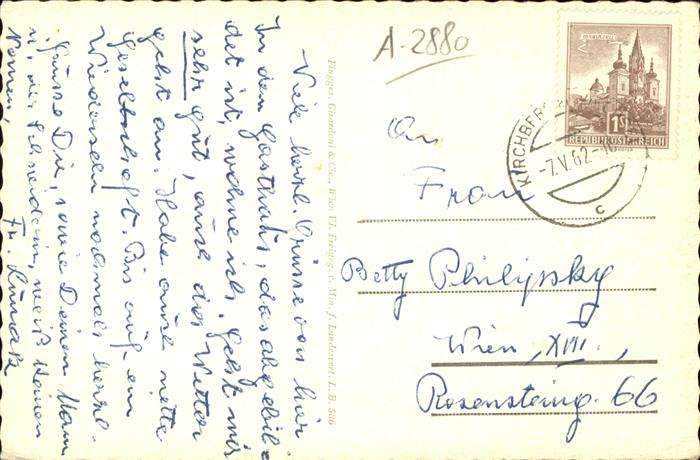 Viele herzl. Grüsse von hier
In dem Gasthaus, das abgebil-
det ist, wohne ich. Geht mir
sehr gut, auch das Wetter
geht an. Habe auch nette
Gesellschaft. Bis auf ein
Wiedersehn nochmals herzl.
Grüsse Dir, sowie Deinem Mann
u. der Schneiderin, weiß keinen
Namen,
Flugger, Ghordoni & Co., Wien VI, Freigeg. v. Min. f. Landesvert. L. B. 586
A-2880
MARIAZELL
1S
REPUBLIK ÖSTERREICH
KIRCHBERG
-7.V.62-
c
An
Frau
Betty Philipsky
Wien, XIII.,
Rosensteing. 66